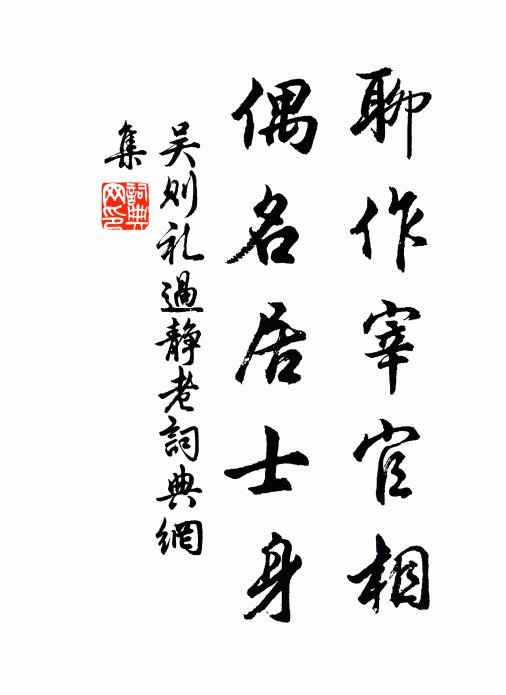 聊作宰官相
偶名居士身
吴则礼過静老詞典網
集
詞典网印